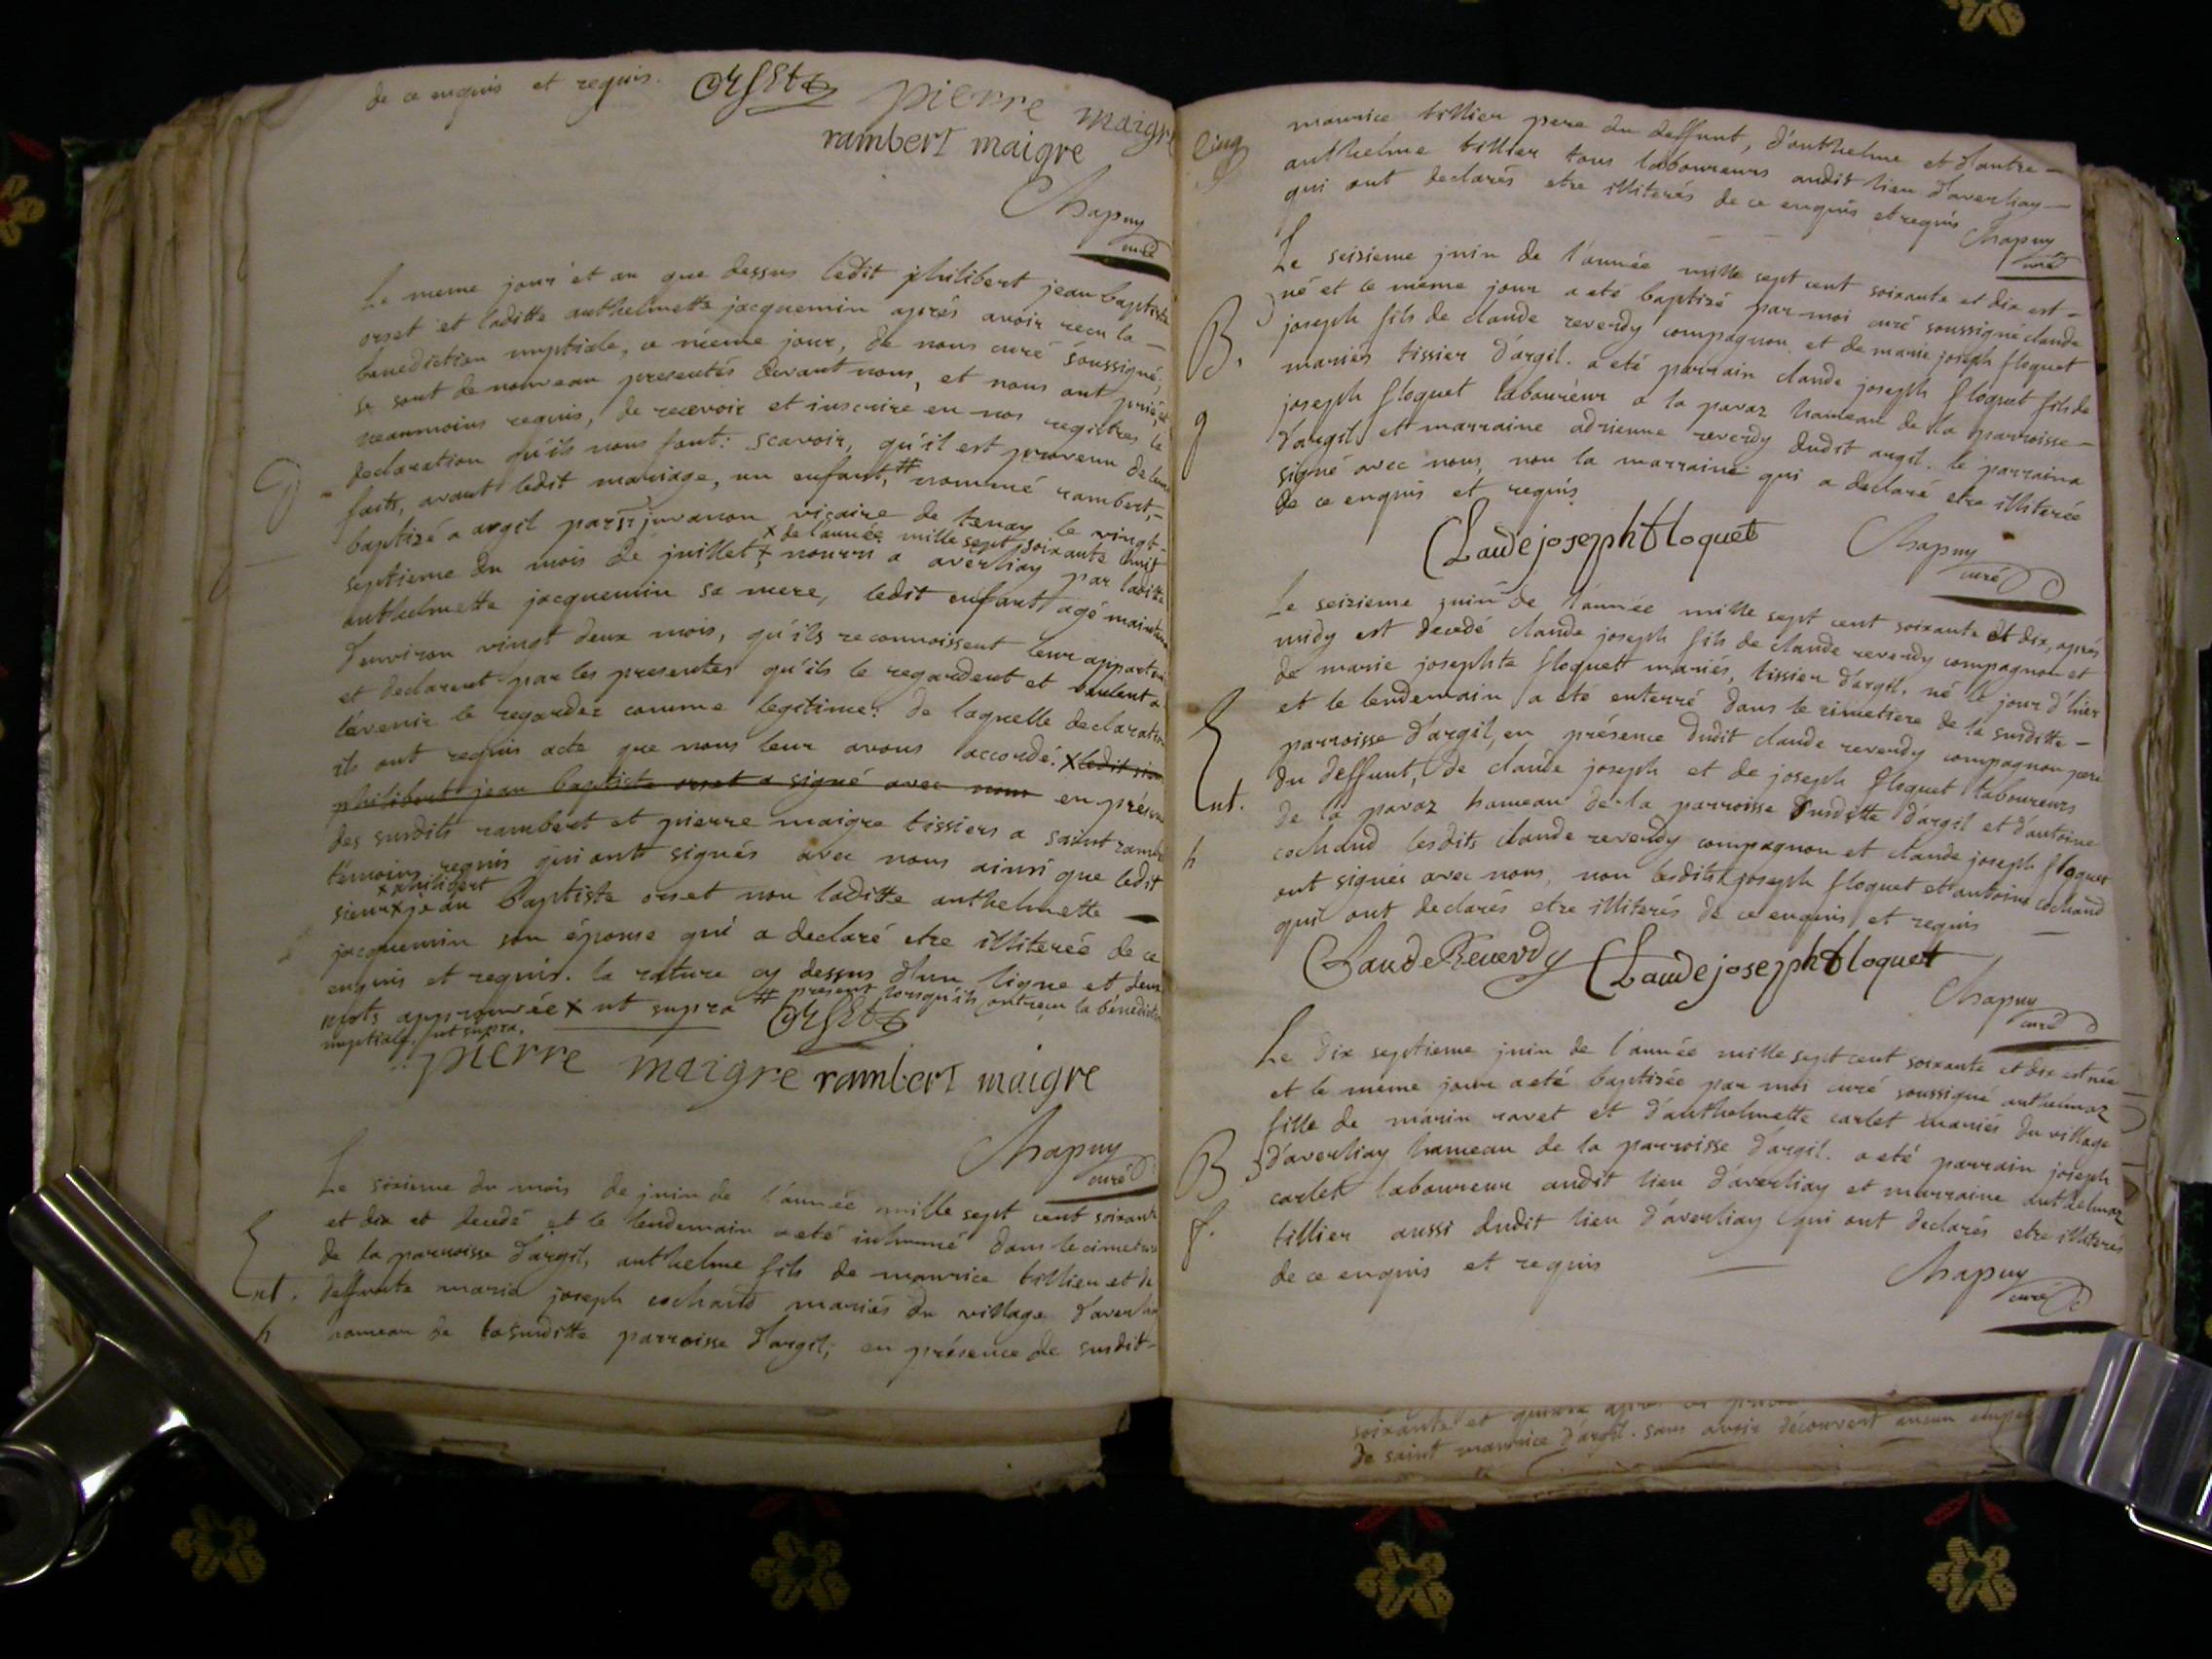 de ce enquis et requis. Orset pierre maigre
rambert maigre
Chapuy
curé
Le meme jour et an que dessus ledit philibert jean baptiste
orset et laditte anthelmette jacquemin aprés avoir recu la —
benediction nuptiale, ce méme jour, de nous curé soussigné,
se sont de nouveau presentés devant nous, et nous ont prié, et
neanmoins requis, de recevoir et inscrire en nos registres la
declaration qu'ils nous font: scavoir, qu'il est provenu de leurs
faits, avant ledit mariage, un enfant,# nommé rambert,-
baptizé a argil par sr juvanon vicaire de tenay le vingt-
x de l'année mille sept soixante huit
septieme du mois de juillet,x nourri a averliay par laditte
anthelmette jacquemin sa mere, ledit enfant agé maintenant
d'environ vingt deux mois, qu'ils reconnoissent leur appartenir
et declarent par les presentes qu'ils le regardent et veulent a
l'avenir le regarder comme legitime: de laquelle declaration
ils ont requis acte que nous leur avons accordé. x ledit sieur
philibert jean baptiste orset a signé avec nous en présence
des susdits rambert et pierre maigre tissiers a saint rambert
témoins requis qui ont signés avec nous ainsi que ledit
x philibert
sieur x jean baptiste orset non laditte anthelmette —
jacquemin son épouse qui a declaré etre illiterée de ce
enquis et requis. la rature cy dessus d'un ligne et deux
mots approuvée x ut supra # present lorsqu'ils ont recu la bénediction
nuptiale, ut supra. Orset
pierre maigre rambert maigre
Chapuy
curé
Le sixieme du mois de juin de l'année mille sept cent soixante
et dix et decedé et le lendemain a eté inhumé dans le cimetiere
de la parroisse d'argil, anthelme fils de maurice tillier et de
Ent. deffunte marie joseph cochand mariés du village d'averliay
h hameau de la susditte parroisse d'argil; en présence de susdit-
Cinq
maurice tillier pere du deffunt, d'anthelme et d'autre —
anthelme tillier tous laboureurs audit lieu d'averliay —
qui ont declarés etre illiterés de ce enquis et requis Chapuy
curé
Le seizieme juin de l'année mille sept cent soixante et dix est -
né et le meme jour a eté baptizé par moi curé soussigné claude
B. joseph fils de claude reverdy compagnon et de marie joseph floquet
mariés tissier d'argil. a eté parrain claude joseph floquet fils de
g joseph floquet laboureur a la paraz hameau de la parroisse —
d'argil et marraine adrienne reverdy dudit argil. le parrain a
signé avec nous, non la marraine qui a declaré etre illiterée
de ce enquis et requis
Claude joseph floquet Chapuy
curé
Le seizieme juin de l'année mille sept cent soixante et dix, aprés
midy est decedé claude joseph fils de claude reverdy compagnon et
de marie josephte floquett mariés, tissier d'argil. né le jour d'hier
et le lendemain a eté enterré dans le cimetiere de la susditte -
parroisse d'argil, en présence dudit claude reverdy compagnon pere
Ent. du deffunt, de claude joseph et de joseph floquet laboureurs
de la paraz hameau de la parroisse susditte d'argil et d'antoine
h cochand lesdits claude reverdy compagnon et claude joseph floquet
ont signés avec nous, non lesdits joseph floquet et antoine cochand
qui ont declarés etre illiterés de ce enquis et requis —
Claude Reverdy Claude joseph floquet
Chapuy
curé
Le dix septieme juin de l'année mille sept cent soixante et dix est née
et le meme jour a eté baptizée par moi curé soussigné anthelmaz
fille de marin ravet et d'anthelmette carlet mariés du village
B d'averliay hameau de la parroisse d'argil. a eté parrain joseph
carlet laboureur audit lieu d'averliay et marraine anthelmaz
f. tillier aussi dudit lieu d'averliay qui ont declarés etre illiterés
de ce enquis et requis — Chapuy
curé
soixante et
de saint maurice d'argil. sans avoir découvert aucun